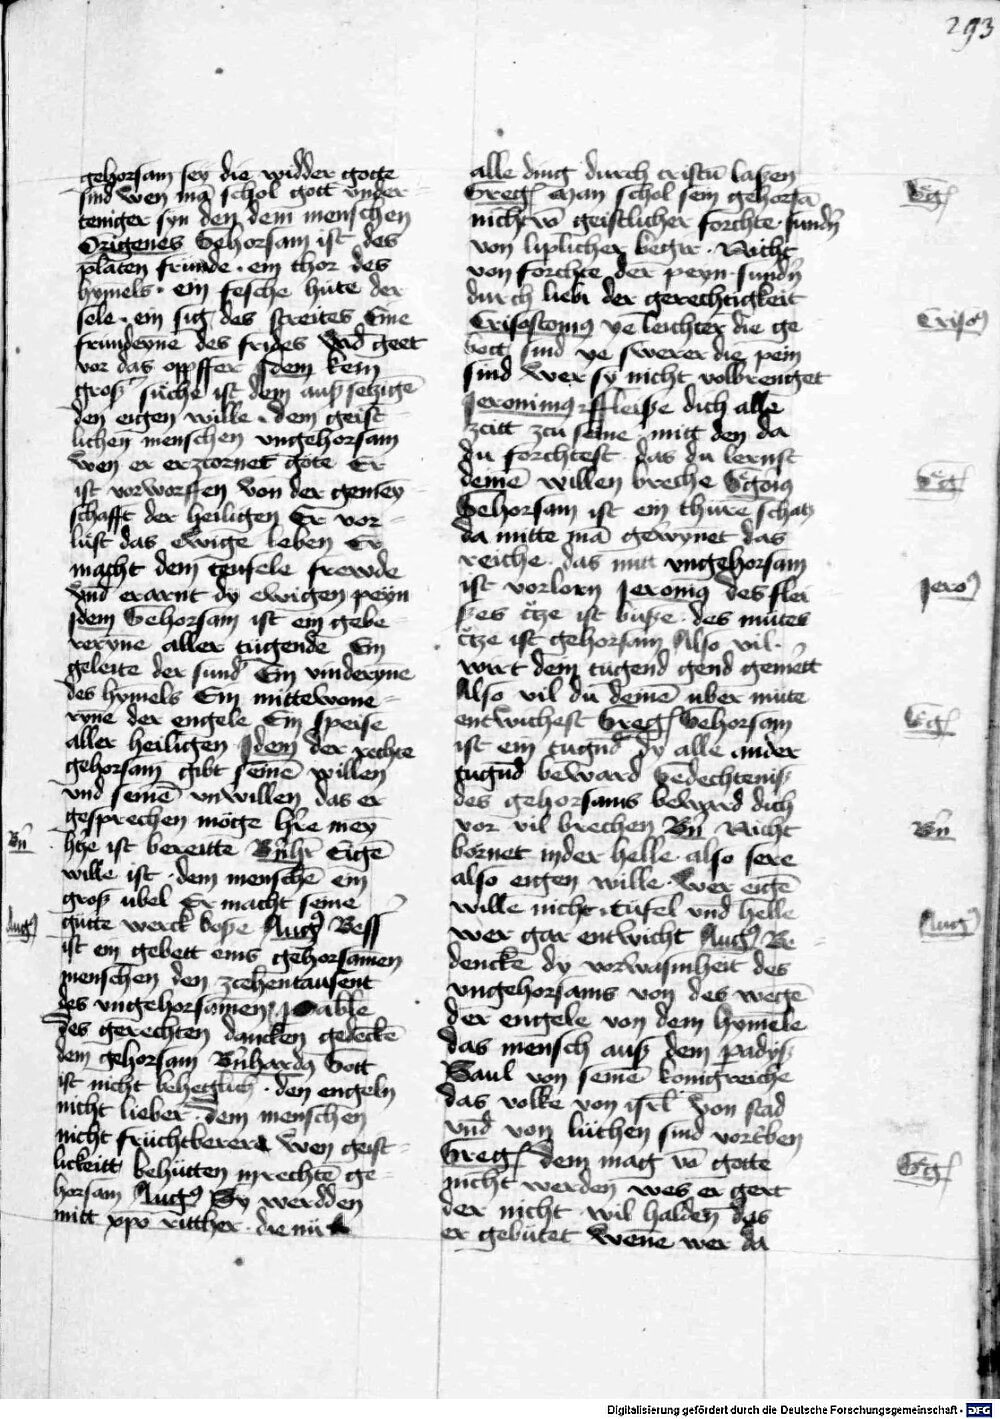 293
gehorsam sey die widder gotte
sind wen mā schol gott vnder
teniger syn den dem menschen
Origenes Gehorsam ist des
platen frunde · ein thor des
hymels · ein fesche hute der
sele · ein sig des streites Eine
frundeyne des frides Vnd geet
vor das oppffer Jdem kein
groß suche ist dem auß setzigē
den eigen wille · dem geist
lichen menschen vngehorsam
wen er erzcornet gote Er
ist vorworffen von der gemey
schafft der heiligen Er vor
lust das ewige leben Er
macht dem teufele frewde
vnd erarnt dy ewigen peyn
Jdem Gehorsam ist ein gebe
reryne aller tugende Ein
geleite der sund Ein vinderyne
des hymels Ein mittewone
ryne der engele Ein speise
aller heiligen Jdem der rechte
gehorsam gibt seinē willen
vnd seinē vnwillen das er
gesprechen möge h're mey
h'tze ist bereitte B'nh' Eigē
wille ist · dem menschē ein
groß ubel Er macht seine
gutte werck boße Aug9 Bess
ist ein gebett eins gehorsamen
menschen den zcehentausent
des vngehorsamen
des gerechten dancken gedeckē
dem gehorsam B'nhard9 Gott
ist nicht beheglich · den engeln
nicht lieber · dem menschen
nicht früchtberer wen geist
lickeitt behütten in rechtē ge
horsam Aug9 Sy werdden
mitt xpō ritther · die nu
B'n
Aug9
alle ding durch cristū laßen
Greg Man schol sein gehorsā
nicht vō geistlicher forchte · sund'n
von liplicher beger · Nicht
von forchte der peyn · sund'n
durch liebi der gerechtigkeit
Crisostomus ye leichter die ge
bott sind ye swerer die pein
sind wer sy nicht volbrenget
Jeronimus ffleiße dich alle
zcitt zcu seine mitt den da
du forchtest das du lernst
deinē willen breche
Gehorsam ist ein thure schatz
da mitte mā gewynet das
reiche · das mitt vngehorsam
ist vorlorn Jeronim9 des flei
sches ist buße · des mutes
ist gehorsam Also vil
wirt dem tugend gend gemett
Also vil du deinē uber mute
entwichest Greg Gehorsam
ist ein tugud dy alle ander
tugud beward Gedechteniß
des gehorsams beward dich
vor vil brechen B'n Nicht
bornet in der helle · also sere
also eigen wille · Wer eigē
wille nicht · tufel vnd helle
wer gar entwicht Aug9 Be
dencke dy vorwasinheit des
vngehorsams von des wegē
der engele von dem hymele
das mensch auß dem padyß
Saul von seinē konigreiche
das volke von isrl von stad
vnd von luthen sind vortben
Greg dem mag vō gotte
nicht werden wes er gert
der nicht wil halden das
er gebutet wene wer da
Crisos
Jero9
B'n
Aug9